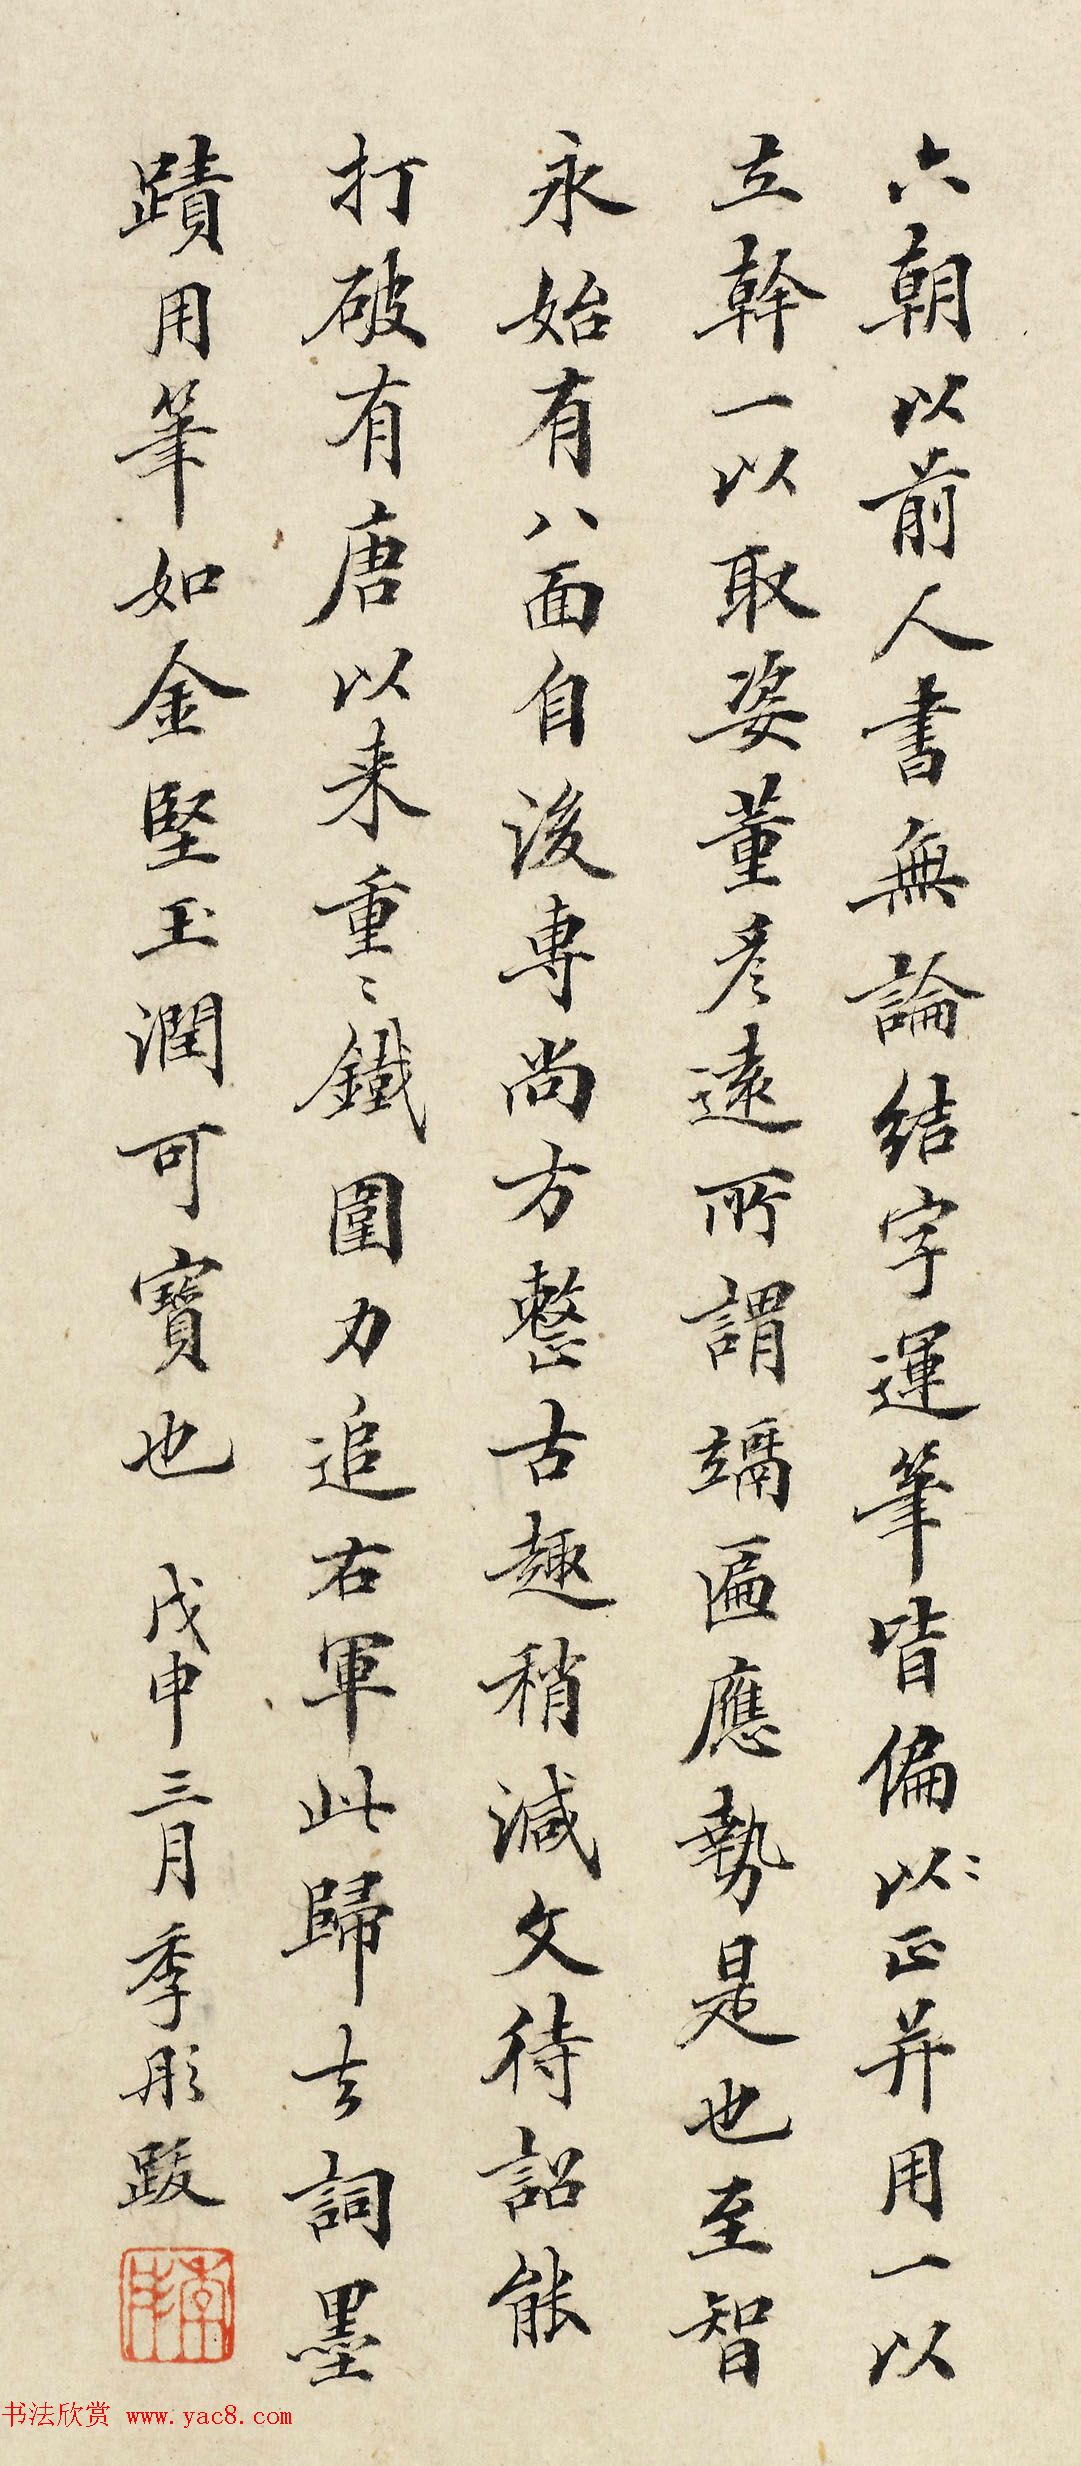 六朝以前人書無論結字運筆皆偏〻以正并用一以
立幹一以取姿董彦遠所謂竵匾應勢是也至智
永始有八面自後專尚方整古趣稍減文待詔能
打破有唐以来重〻鐵圍力追右軍此歸去詞墨
蹟用筆如金堅玉潤可寶也 戊申三月季彤跋
书法欣赏 www.yac8.com